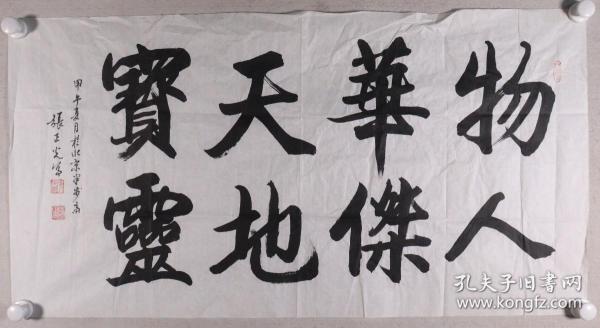 物華天寶
人傑地靈
甲午夏月於北京
孔夫子旧书网
www.kongfz.com